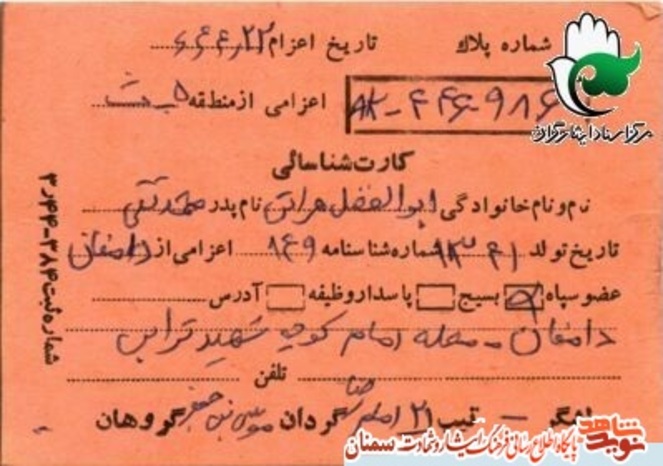 شماره پلاك تاریخ اعزام ۲۲
اعزامی از منطقه ۵
مرکز اسناد ایثارگران
کارت شناسائی
نام و نام خانوادگی ابوالفضل هراتی نام پدر محمد تقی
تاریخ تولد ۱۳۴۱ شماره شناسنامه ۸۴۹ اعزامی از دامغان
عضو سپاه بسیج پاسدار وظیفه آدرس
دامغان - محله امام کوچه شهید ترابی
تلفن
لشگر - تیپ ۲۱ امام رضا گردان موسی بن جعفر گروهان
شماره ثبت ۳۸۴-۳۴۴
نوید شاهد
پایگاه اطلاع رسانی فرهنگ ایثار و شهادت سمنان